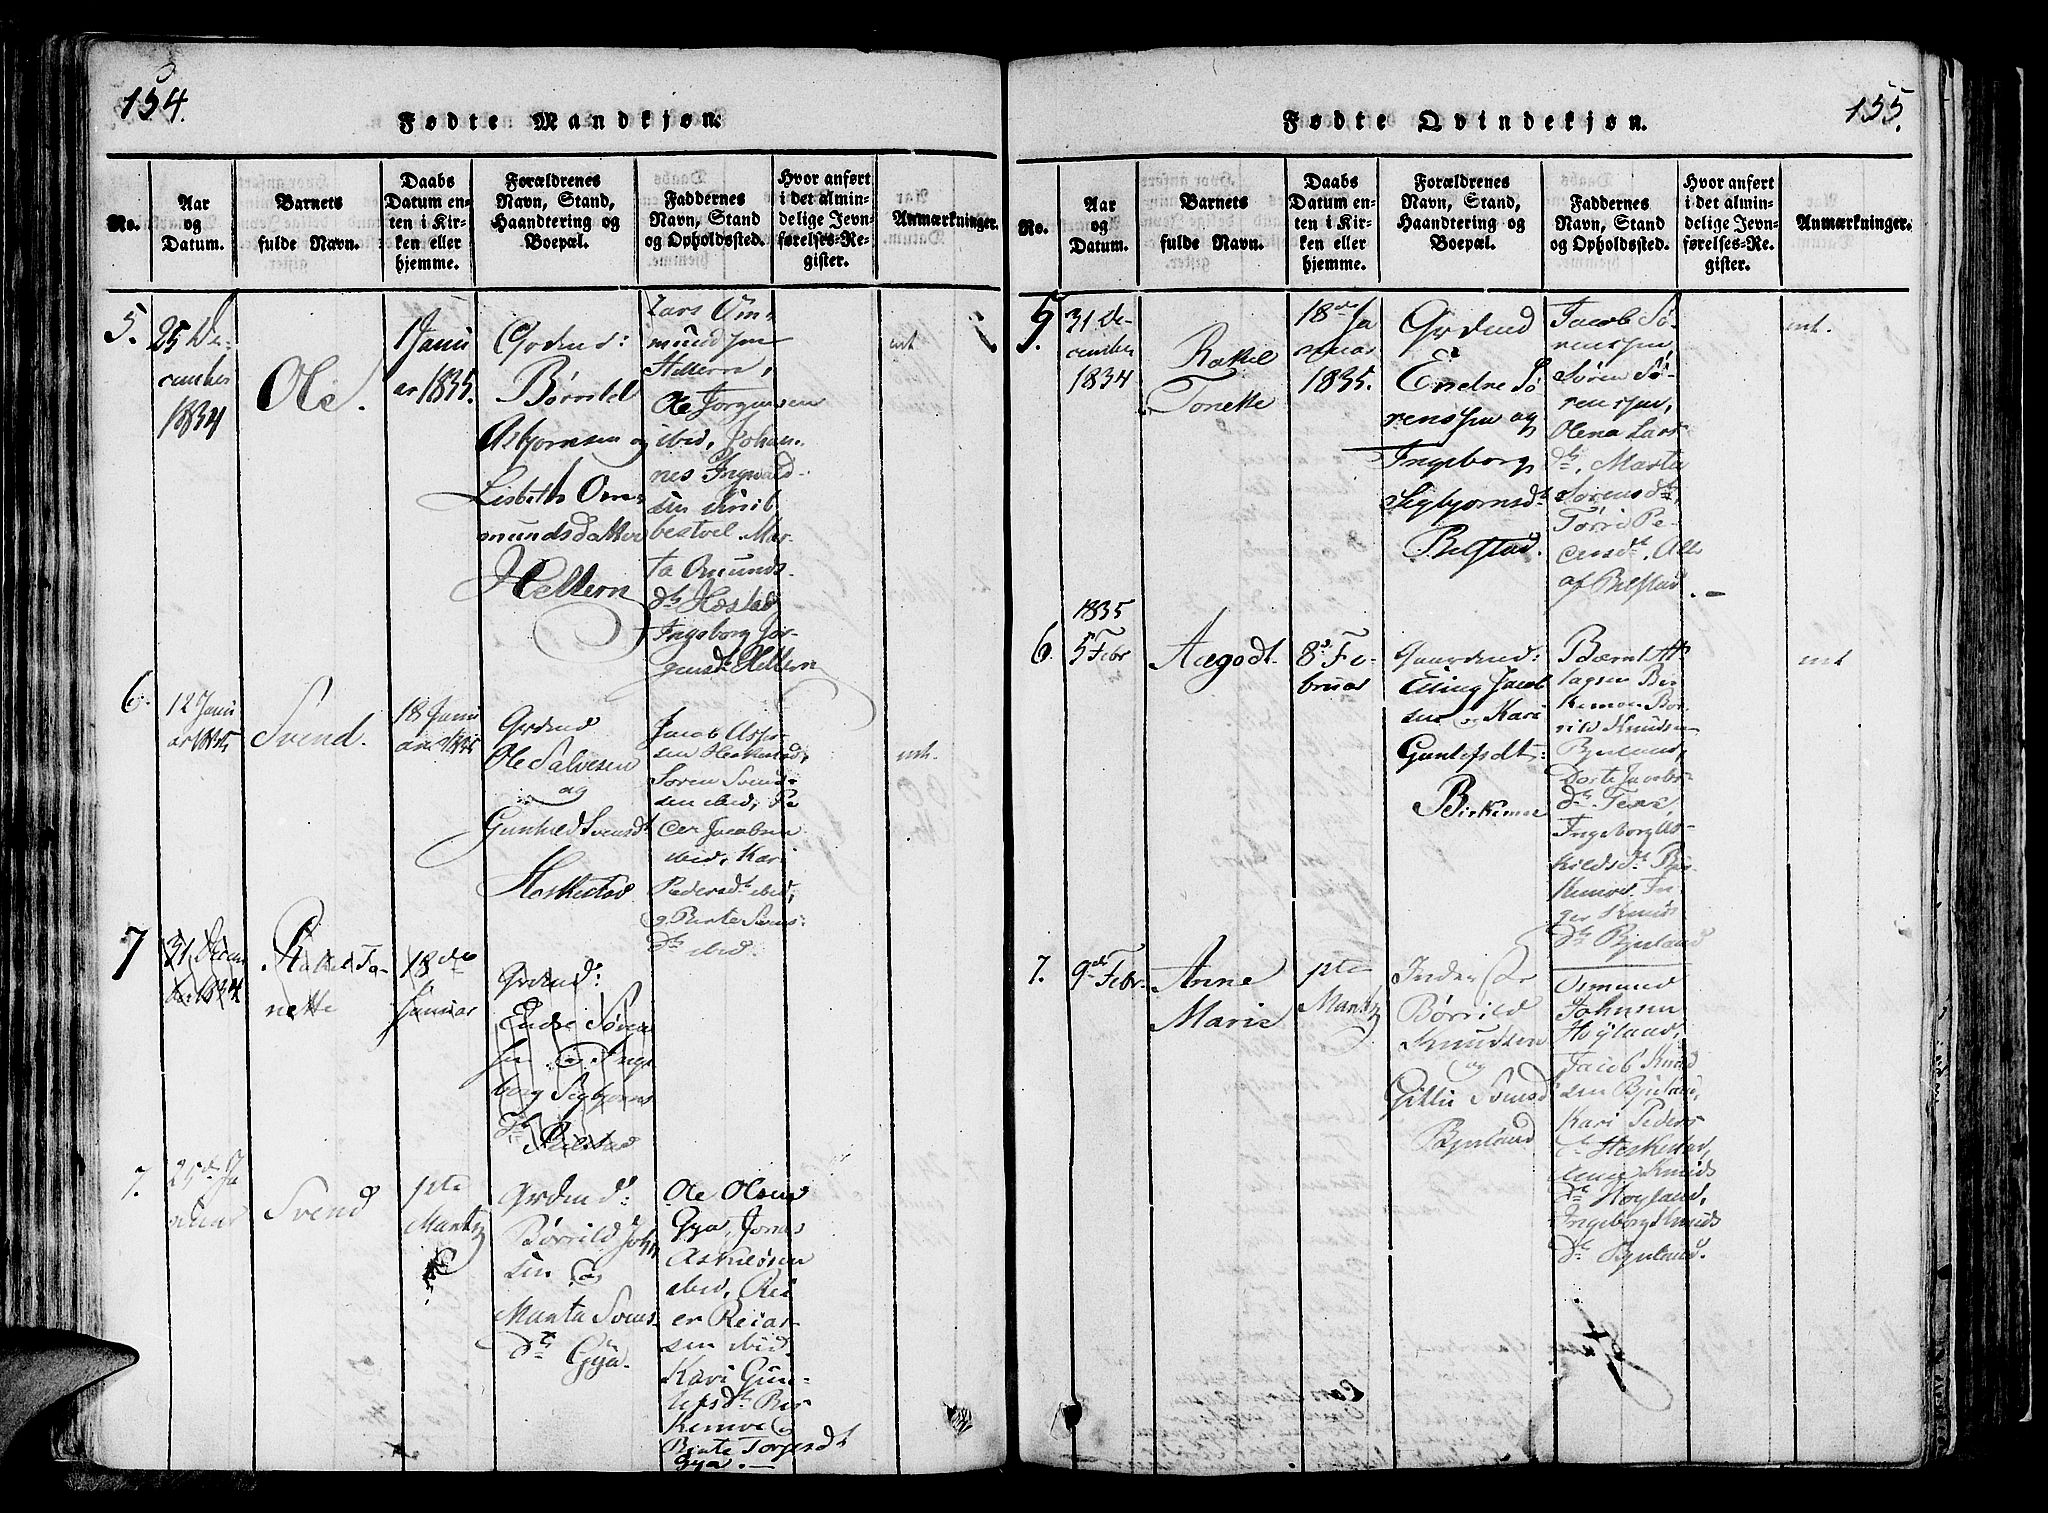 154.
Fødte Mandkjøn.
No.
Aar
og
Datum.
Barnets
fulde Navn.
Daabs
Datum en-
ten i Kir-
ken eller
hjemme.
Forældrenes
Navn, Stand,
Haandtering og
Boepæl.
Faddernes
Navn, Stand
og Opholdssted.
Hvor anført
i det almin-
delige Jevn-
førelses-Re-
gister.
Anmærkninger.
5.
25 De-
cember
1834
Ole.
1 Janu
ar 1835.
Grdmd:
Børrild
Asbjørnsen og
Lisbeth Om-
mundsdatter
Hellern
Lars Om-
mundsen
Hellern,
Ole Jørgensen
ibid, Johan-
nes Ingvald-
sen
bestvel Mar-
ta Omunds-
dtr Hæstad
Ingeborg Jør-
gensdt Hellern
6.
12 Janu
ar 1835
Svend.
18 Janu
ar 1835
Grdmd
Ole Salvesen
og
Gunhild Svensdt
Heskestad
Jacob
sen Heskestad,
Søren Svend-
sen ibid, Pe
der Jacobsen
ibid, Kari
Pedersdt ibid,
g Berte Svens-
dtr ibid.
7
31 Decem
ber 1834
Rakel To-
nette
18de
Januar
Grdmd:
Endre Søren
sen og Inge
borg Segbjørns
dtr Bilstad
7.
25de Ja
nuar
Svend
1ste
Martz
Grdmd:
Børrild John
sen og
Marta Svens-
dtr Gya.
Ole Olsen
Gya, Jonas
Askildsen
ibid, Rei
er Reiar-
sen ibid
Kari Gun-
lefsdtr Bir
kemoe og
Berte Torgersdt
Gya.
155.
Fødte Qvindekjøn.
No.
Aar
og
Datum.
Barnets
fulde Navn.
Daabs
Datum en-
ten i Kir-
ken eller
hjemme.
Forældrenes
Navn, Stand,
Haandtering og
Boepæl.
Faddernes
Navn, Stand
og Opholdssted.
Hvor anført
i det almin-
delige Jevn-
førelses-Re-
gister.
Anmærkninger.
5.
31 De-
cember
1834
Rakel
Tonette
18de Ja
nuar
1835.
Grdmd
Endre Sø
rensen og
Ingeborg
Segbjørnsdt
Bilstad.
Jacob Sø-
rensen
Søren Sø-
rensen,
Olena Lars
dtr, Marta
Sørensdtr,
Tørri Pe-
dersdt, Alle
af Bilstad.
6.
1835
5 Febr
Aagodt
8de Fe-
bruar
Gaardmd:
Elling Jacob
sen og Kari
Gunlefsdt:
Birkemoe
Bernt At
lagsen Bir
kemoe Bør-
rild Knudsen
Bjuland,
Dorte Jacobs-
dtr
Ingeborg As-
kildsdtr Bir
kemoe In-
ger Knuds
dtr Bjuland
7.
9de Febr.
Anne
Marie
1ste
Martz
Inderster
Børrild
Knudsen
og
Gitlie Svensd
Bjuland
Osmund
Johnsen
Høyland,
Jacob Knud
sen Bjuland,
Kari Peders
dtr Heskestad,
Knuds
dtr Høyland,
Ingeborg Knuds
dtr Bjuland.